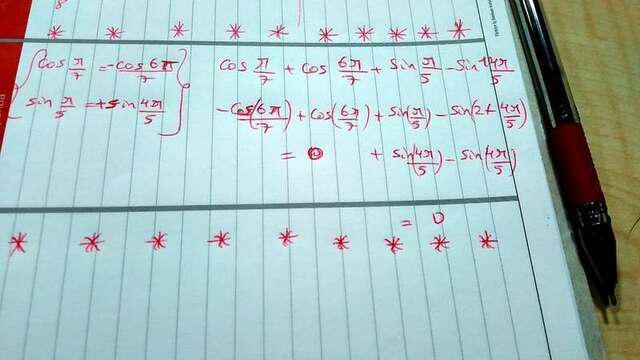 * * * * * * * * *
cos π/7 = -cos 6π/7
sin π/5 = + sin 4π/5
cos π/7 + cos 6π/7 + sin π/5 - sin 4π/5
-cos(6π/7) + cos(6π/7) + sin(π/5) - sin( 4π/5)
= 0 + sin(4π/5) - sin(4π/5)
= 0
* * * * * * * * *